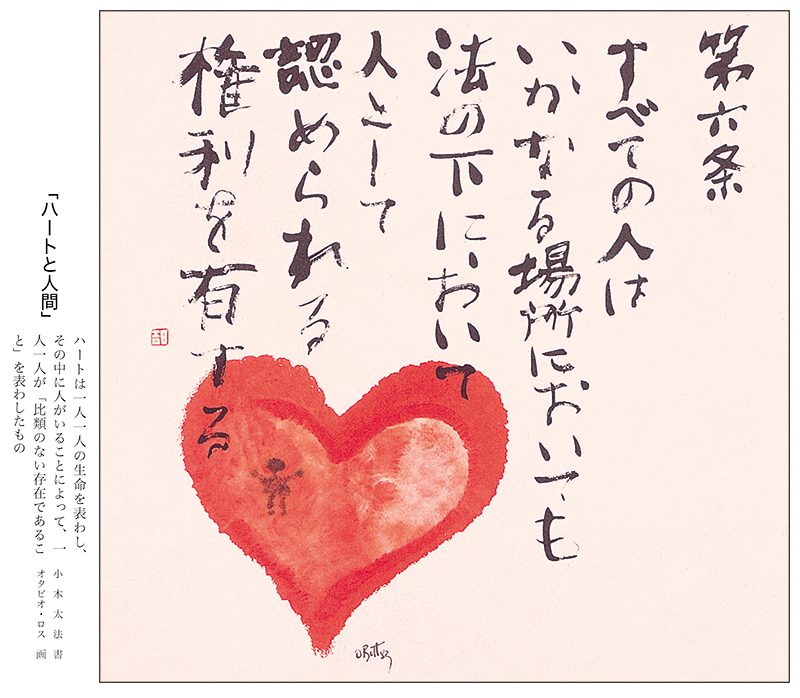 第六条
すべての人は
いかなる場所においても
法の下において
人として
認められる
権利を有する
「ハートと人間」
ハートは一人一人の生命を表わし、
その中に人がいることによって、一
人一人が「比類のない存在であるこ
と」を表わしたもの
小木太法 書
オタビオ・ロス 画